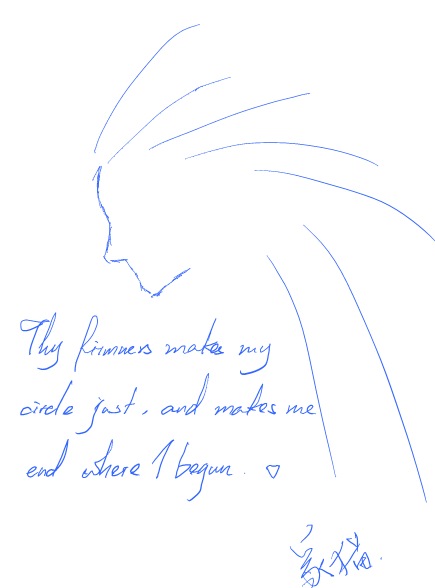 Thy firmness makes my
circle just, and makes me
end where I begun. ♡
家猫.